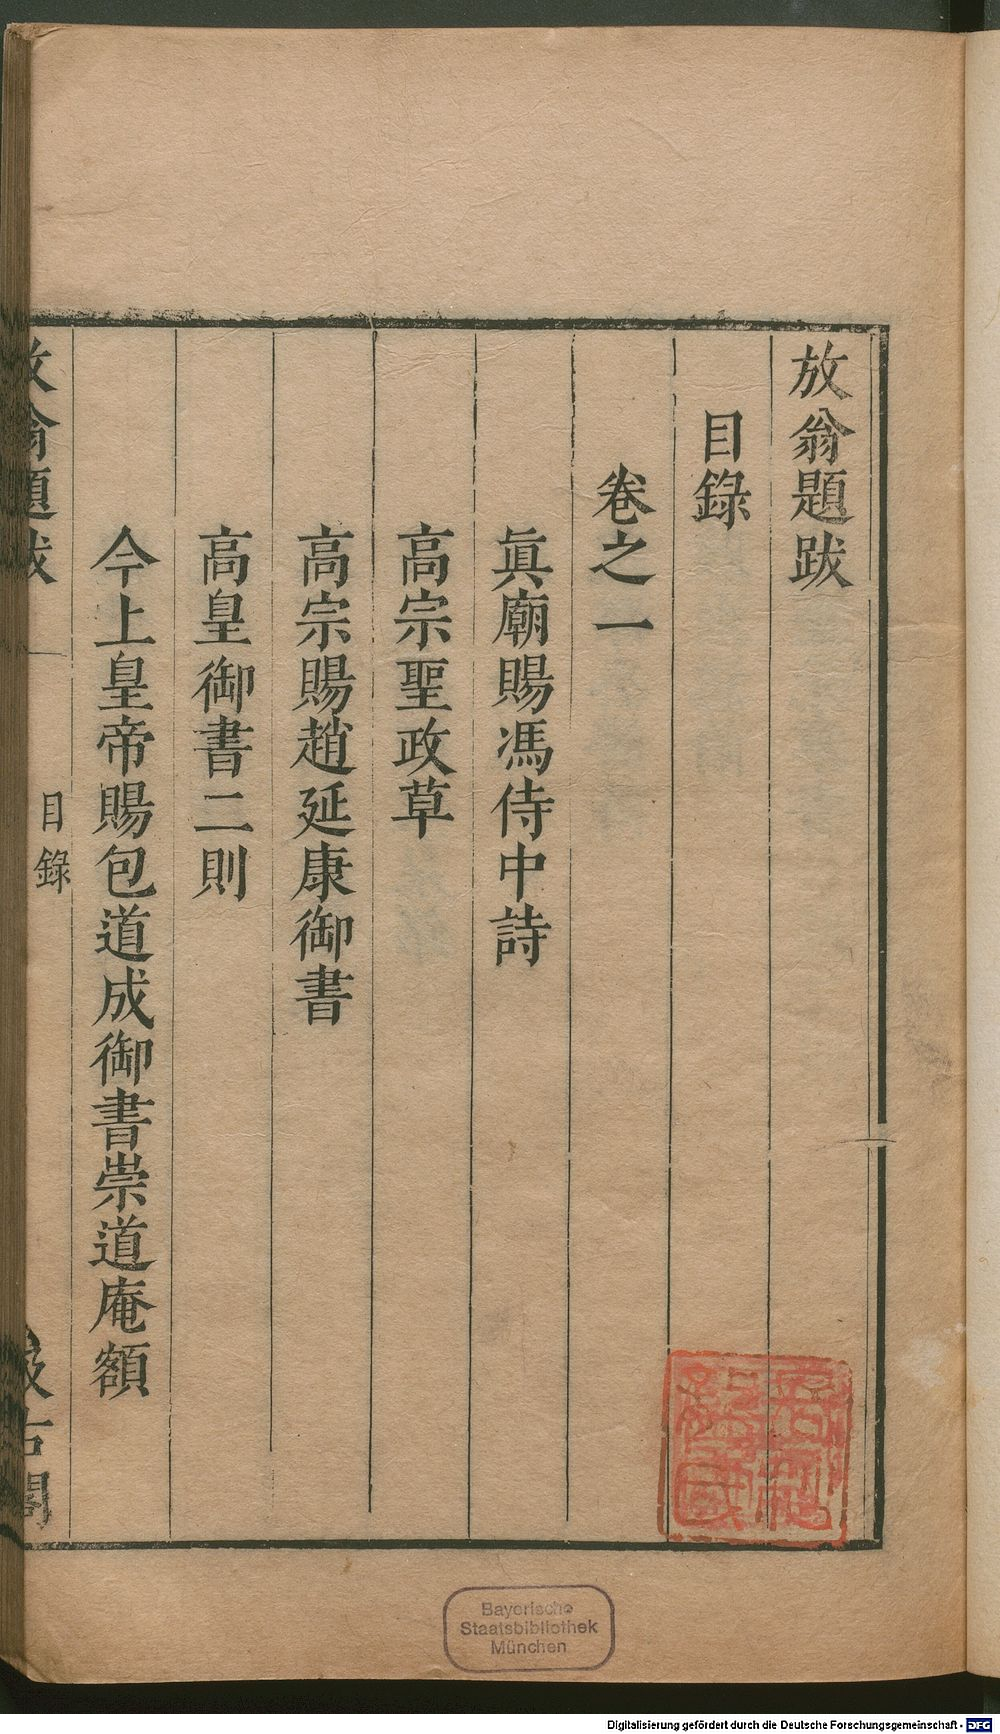 放翁題跋
目錄
卷之一
眞廟賜馮侍中詩
高宗聖政草
高宗賜趙延康御書
高皇御書二則
今上皇帝賜包道成御書崇道庵額
放翁題跋
目錄
汲古閣
Bayerische
Staatsbibliothek
München
Digitalisierung gefördert durch die Deutsche Forschungsgemeinschaft - DFG